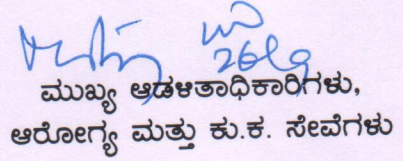 ಮುಖ್ಯ ಆಡಳಿತಾಧಿಕಾರಿಗಳು,
ಆರೋಗ್ಯ ಮತ್ತು ಕು.ಕ. ಸೇವೆಗಳು